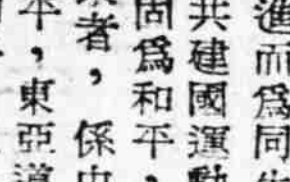 進而爲同
共建國運動
固爲和平，
者，係由
平，東亞